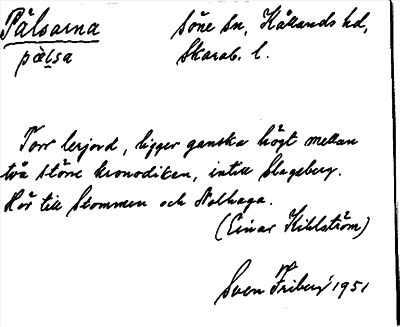 Pälsarna
Söne sn, Kållands hd,
pæḷsa
Skarab. l.
Torr lerjord, ligger ganska högt mellan
två större kronodiken, intill Slagsberg.
Hör till Stommen och Nolhaga.
(Einar Kihlström)
Sven Friberg 1951